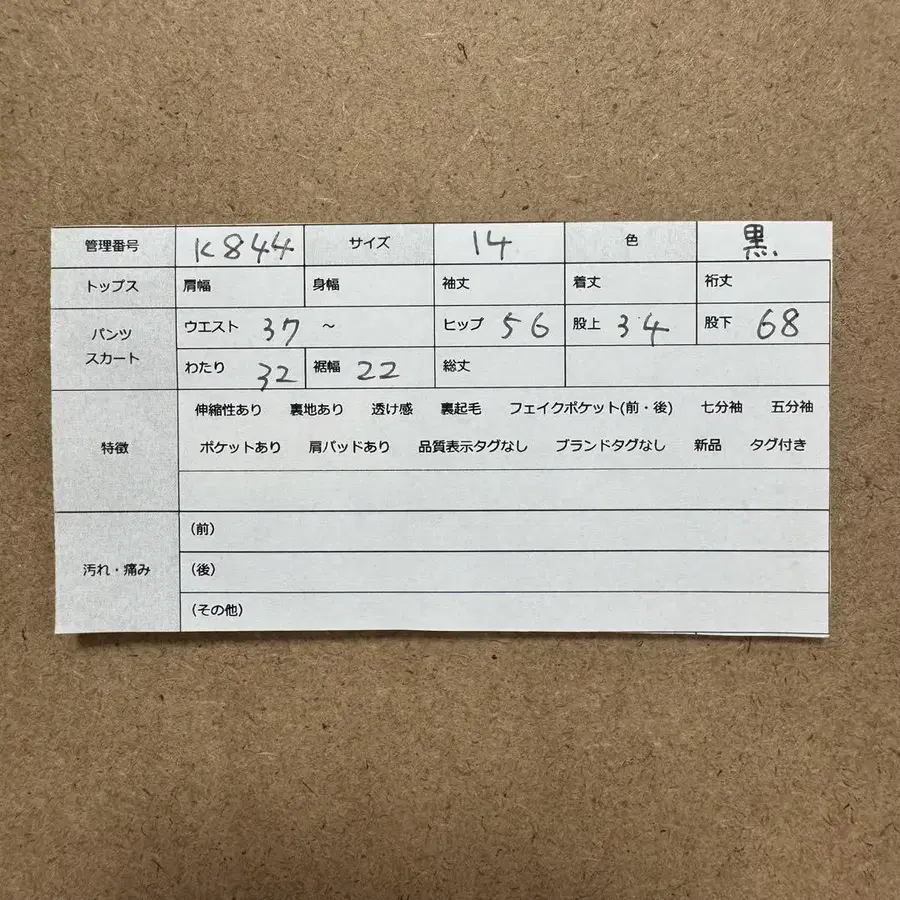 管理番号 K844 サイズ 14 色 黒
トップス 肩幅 身幅 袖丈 着丈 裄丈
パンツ スカート ウエスト 37 ～ ヒップ 56 股上 34 股下 68
わたり 32 裾幅 22 総丈
特徴 伸縮性あり 裏地あり 透け感 裏起毛 フェイクポケット(前・後) 七分袖 五分袖
ポケットあり 肩パッドあり 品質表示タグなし ブランドタグなし 新品 タグ付き
汚れ・痛み (前)
(後)
(その他)